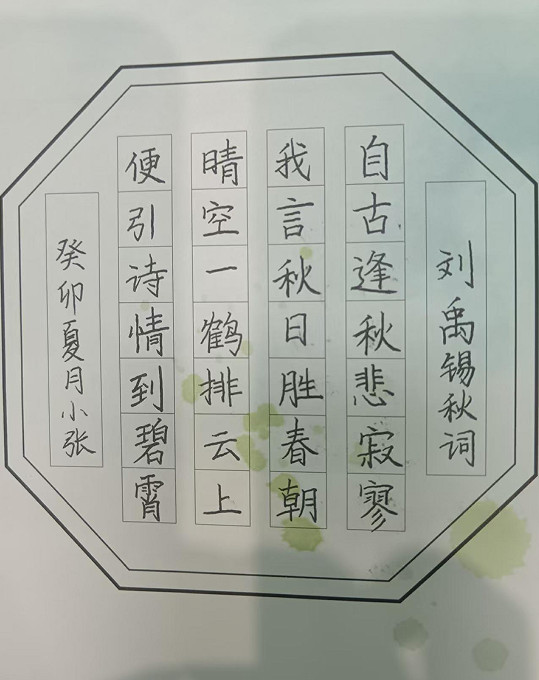 刘禹锡秋词
自古逢秋悲寂寥
我言秋日胜春朝
晴空一鹤排云上
便引诗情到碧霄
癸卯夏月小张